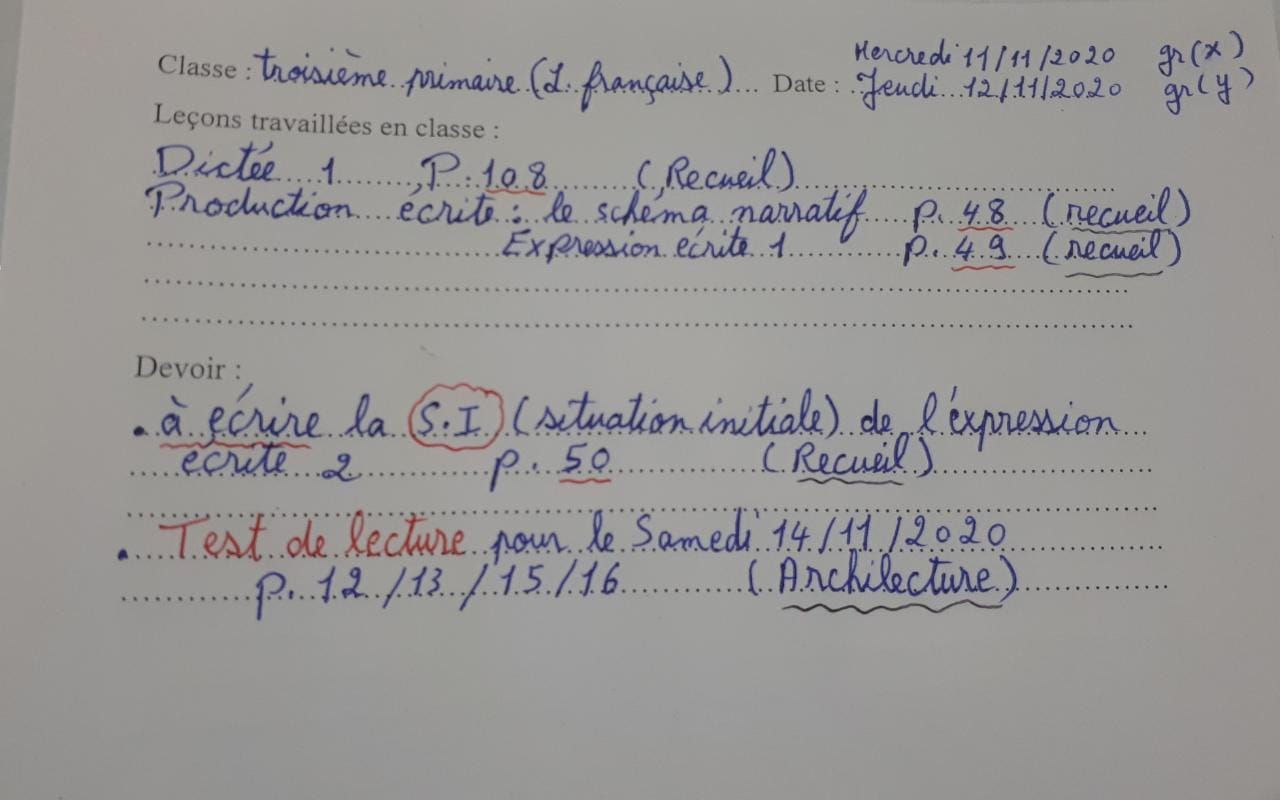 Mercredi 11/11/2020 gr(x)
Classe : troisième primaire (L. française) Date : Jeudi 12/11/2020 gr(y)
Leçons travaillées en classe :
Dictée 1 P. 108 (Recueil)
Production écrite : le schéma narratif p. 48 (recueil)
Expression écrite 1 p. 49 (recueil)
Devoir :
. à écrire la S.I (situation initiale) de l'expression
écrite 2 p. 50 (Recueil)
. Test de lecture pour le Samedi 14/11/2020
p. 12/13/15/16 (Archilecture)